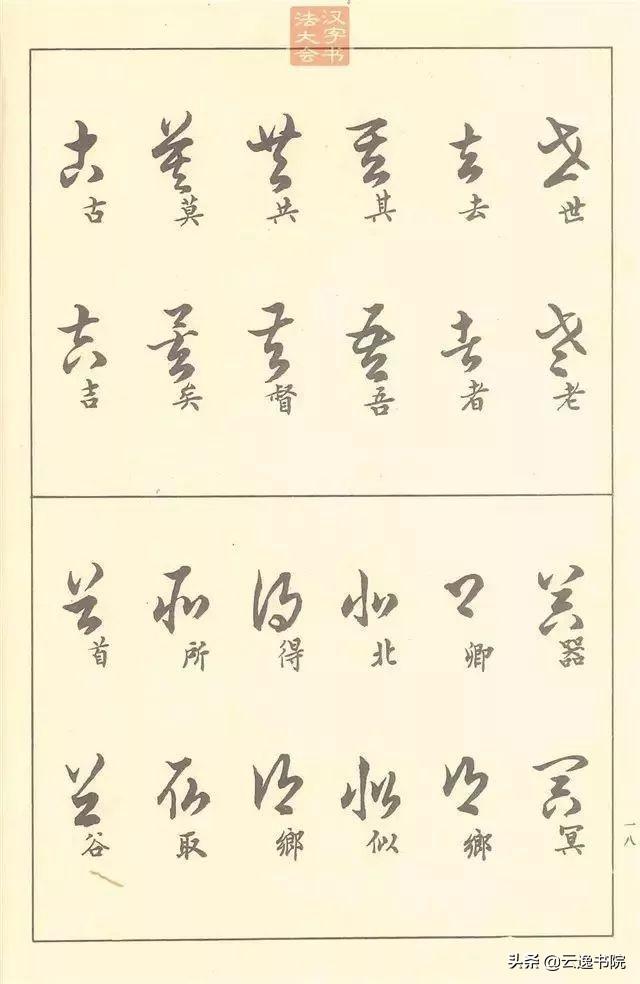 汉字书法大会
世 去 其 共 莫 古
老 者 吾 督 矣 吉
器 卿 北 得 所 首
冥 鄉 似 鄉 取 谷
一八
头条 @云逸书院